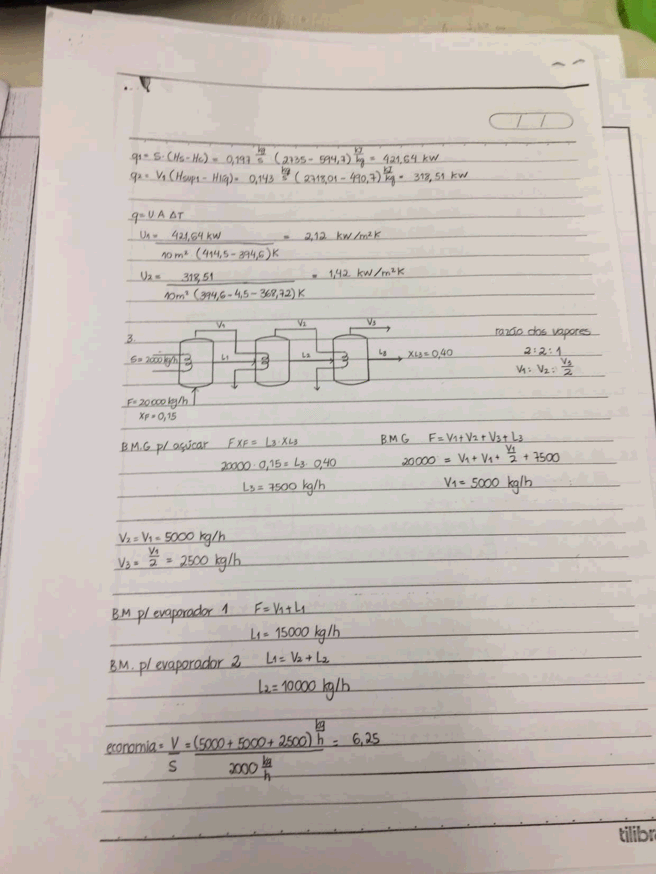 q1 = S·(Hs-Hc) = 0,197 kg/s (2735 - 594,7) kJ/kg = 421,64 kW
q2 = V1 (Hsup1 - Hliq) = 0,143 kg/s (2718,01 - 490,7) kJ/kg = 318,51 kW
q = U A ΔT
U1 = 421,64 kW / 10m² (414,5 - 394,6) K = 2,12 kW/m²K
U2 = 318,51 / 10m² (394,6 - 4,5 - 367,72) K = 1,42 kW/m²K
3.
V1 V2 V3
S = 2000 kg/h L1 L2 L3 XL3 = 0,40
F = 20000 kg/h
XF = 0,15
razão dos vapores
2:2:1
V1 = V2 = V3/2
B.M.G p/ açúcar F XF = L3·XL3
20000·0,15 = L3·0,40
L3 = 7500 kg/h
B.M.G F = V1 + V2 + V3 + L3
20000 = V1 + V1 + V1/2 + 7500
V1 = 5000 kg/h
V2 = V1 = 5000 kg/h
V3 = V1/2 = 2500 kg/h
B.M p/ evaporador 1 F = V1 + L1
L1 = 15000 kg/h
B.M. p/ evaporador 2 L1 = V2 + L2
L2 = 10000 kg/h
economia = V/S = (5000 + 5000 + 2500) kg/h / 2000 kg/h = 6,25
tilibra